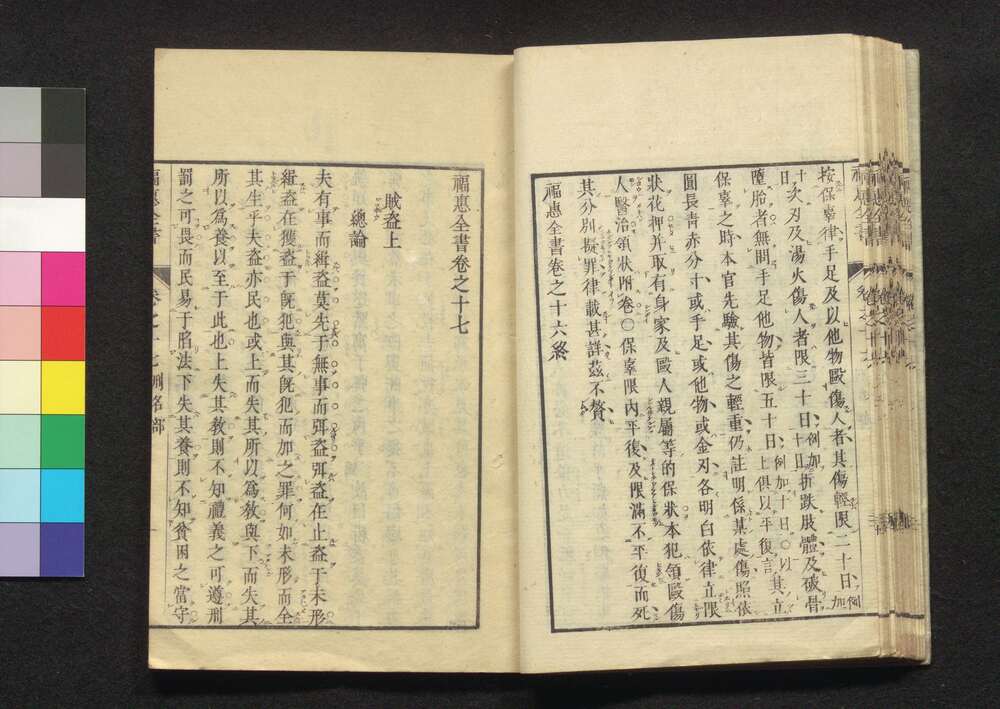 按保辜律手足及以他物毆傷人者其傷輕限二十日例加
十日刃及湯火傷人者限三十日例加十日折跌肢體及破骨
墮胎者無問手足他物皆限五十日例加十日〇以上俱以平復言其立
保辜之時本官先驗其傷之輕重仍註明係某處傷照依
圓長青赤分寸或手足或他物或金刃各明白依律立限
狀花押并取有身家及毆人親屬等的保狀本犯領毆傷
人醫治領狀附卷〇保辜限內平復及限滿不平復而死
其分別擬罪律載甚詳茲不贅
福惠全書卷之十六終
福惠全書卷之十七
賊盜上
總論
夫有事而緝盜莫先于無事而弭盜弭盜在止盜于未形
緝盜在獲盜于旣犯與其旣犯而加之罪何如未形而全
其生乎夫盜亦民也或上而失其所以為教與下而失其
所以為養以至于此也上失其教則不知禮義之可遵刑
罰之可畏而民易于陷法下失其養則不知貧困之當守
福惠全書 卷之十七 刑名部